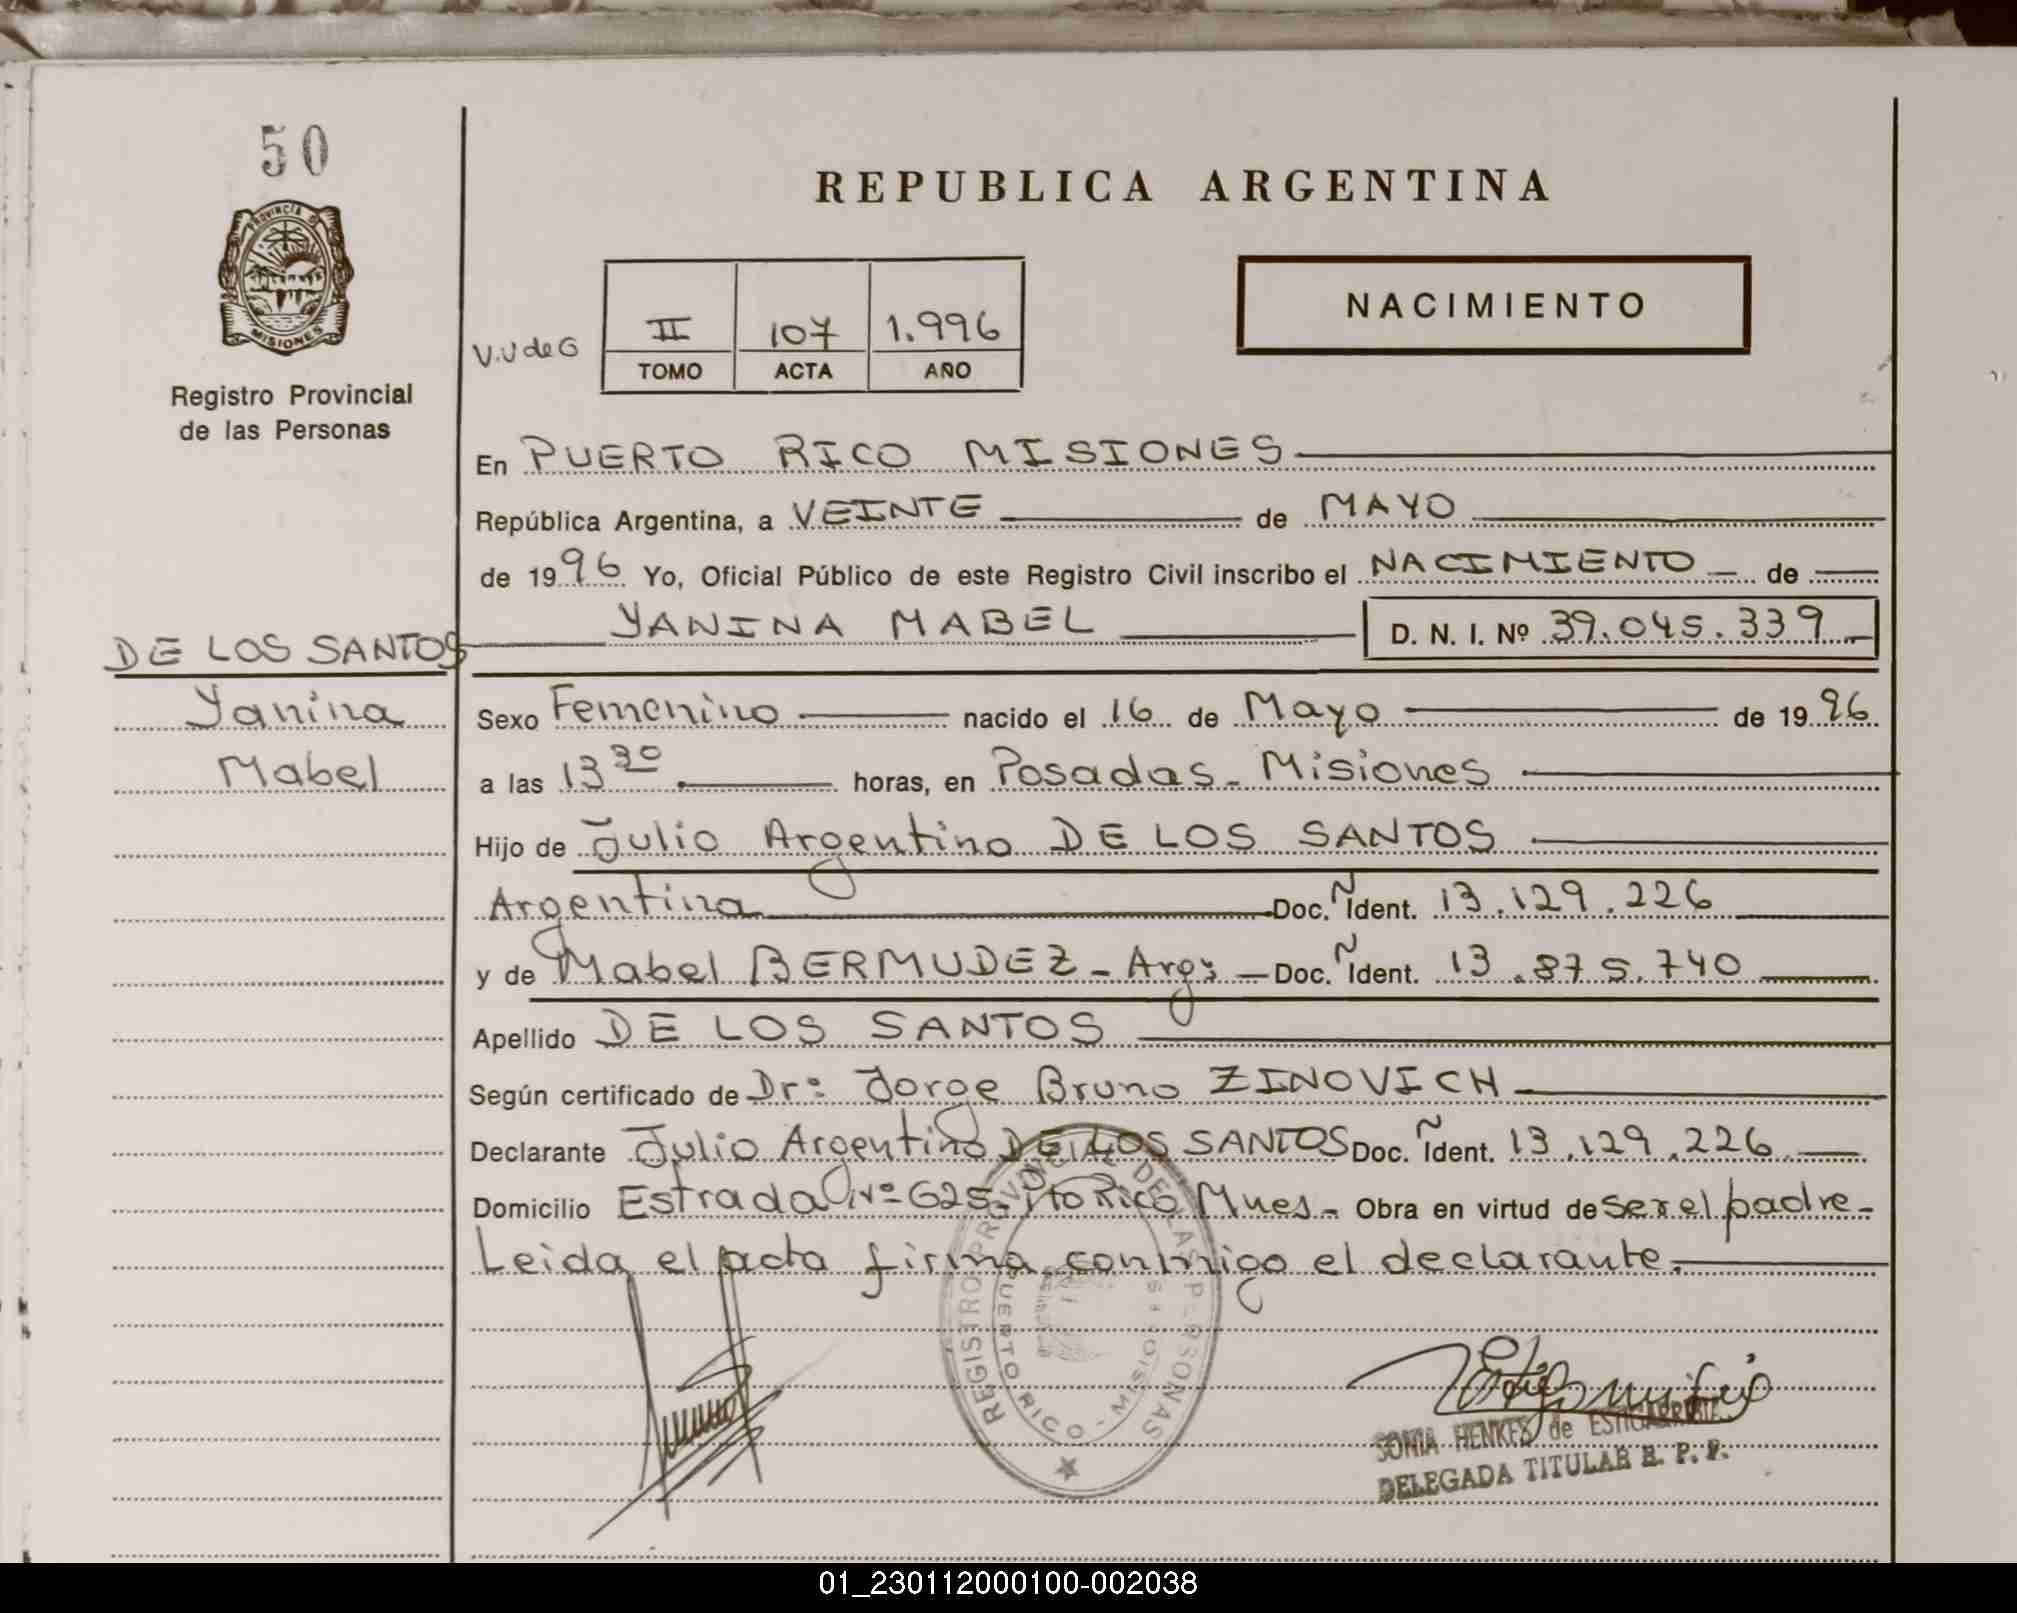 50
PROVINCIA DE
MISIONES
Registro Provincial
de las Personas
REPUBLICA ARGENTINA
NACIMIENTO
V.V de G
II 107 1.996
TOMO ACTA AÑO
En PUERTO RICO MISIONES
República Argentina, a VEINTE de MAYO
de 1996 Yo, Oficial Público de este Registro Civil inscribo el NACIMIENTO de
YANINA MABEL D. N. I. Nº 39.045.339
DE LOS SANTOS
Yanina
Mabel
Sexo Femenino nacido el 16 de Mayo de 1996
a las 13 30 horas, en Posadas - Misiones
Hijo de Julio Argentino DE LOS SANTOS
Argentina Doc. Ñ Ident. 13.129.226
y de Mabel BERMUDEZ - Arg; Doc. Ñ Ident. 13.875.740
Apellido DE LOS SANTOS
Según certificado de Dr: Jorge Bruno ZINOVICH
Declarante Julio Argentino DE LOS SANTOS Doc. Ñ Ident. 13.129.226
Domicilio Estrada Nº 625 - Pto Rico Mnes - Obra en virtud de ser el padre -
Leida el acta firma conmigo el declarante.
REGISTRO PROVINCIAL DE LAS PERSONAS
PUERTO RICO - MISIONES
SONIA HENKES de ESTIGARRIBIA
DELEGADA TITULAR R. P. P.
01_230112000100-002038